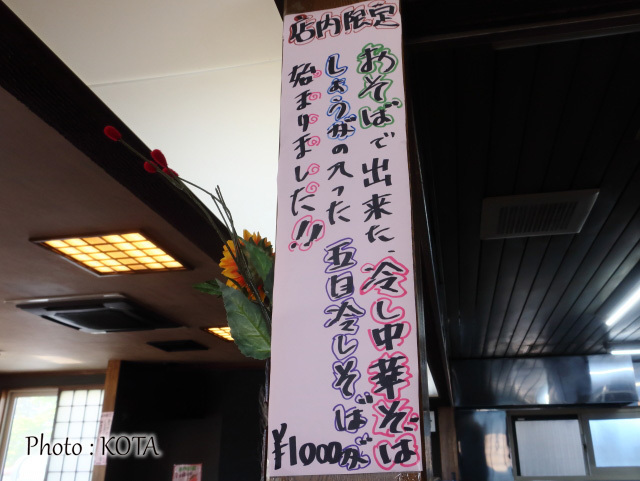 店内限定
おそばで出来た、冷し中華そば
しょうがの入った 五目冷しそばが
始まりました!!
¥1000
Photo : KOTA